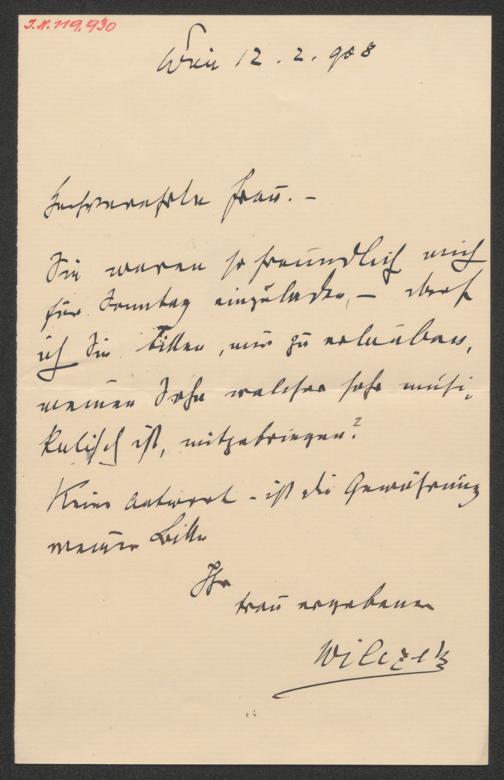 I.N. 119.930
Wien 12. 2. 908
Hochverehrte Frau. –
Sie waren so freundlich mich
für Sonntag einzuladen, – darf
ich Sie bitten, mir zu erlauben,
meinen Sohn welcher sehr musi-
kalisch ist, mitzubringen?
Keine Antwort – ist die Gewährung
meiner Bitte
Ihr
treu ergebener
Wilczek